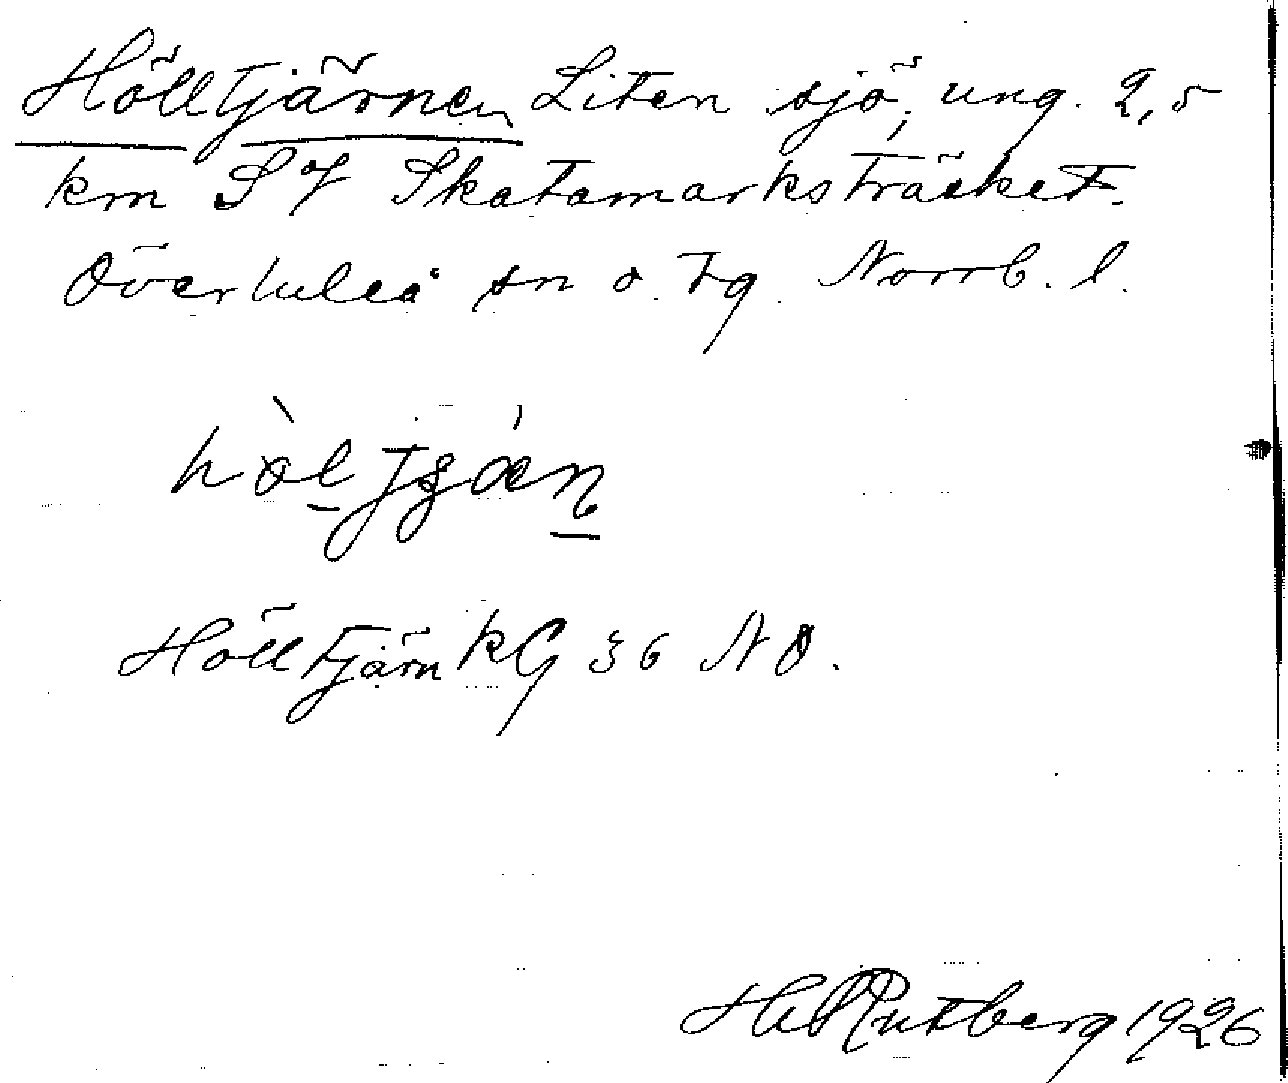 Hölltjärnen Liten sjö, ung. 2,5
km S of Skatamarksträsket.
Överluleå sn o. tg. Norrb. l.
hòl tjǽn
Hölltjärn kG 36 NO.
Hd Rutberg 1926